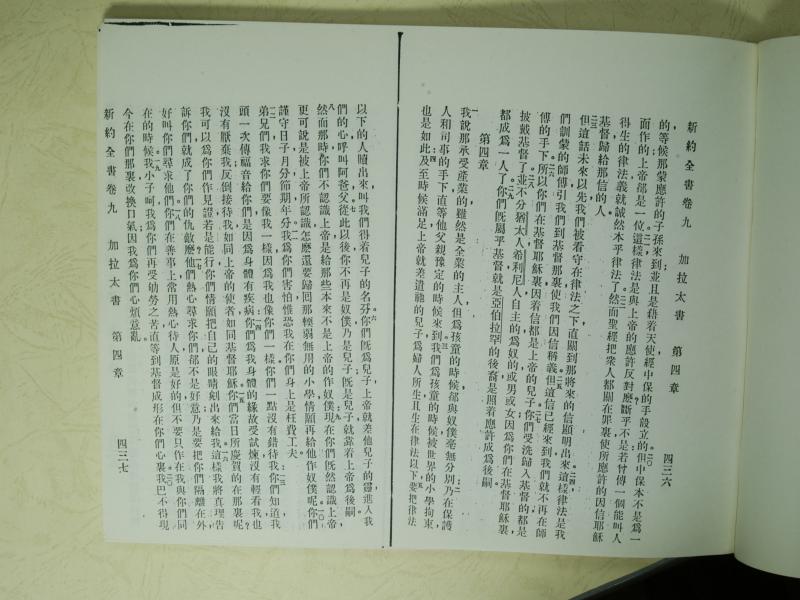 新約全書卷九　加拉太書　第四章　四三六
的等候那蒙應許的子孫來到並且是藉着天使經中保的手設立的二〇但中保本不是爲一
面作的上帝卻是一位二一這樣律法是與上帝的應許反對麽斷乎不是若曾傳一個能叫人
得生的律法義就誠然本乎律法了二二然而聖經把衆人都關在罪裏使所應許的因信耶穌
基督歸給那信的人
二三但這話未來以先我們被看守在律法之下直關到那將來的信顯明出來二四這樣律法是我
們訓蒙的師傅引我們到基督那裏使我們因信稱義二五但這信已經來到我們就不再在師
傅的手下二六所以你們在基督耶穌裏因着信都是上帝的兒子二七你們受洗歸入基督的都是
披戴基督了二八並不分猶太人希利尼人自主的爲奴的或男或女因爲你們在基督耶穌裏
都成爲一人了二九你們旣屬乎基督就是亞伯拉罕的後裔是照着應許成爲後嗣
第四章
一我說那承受產業的雖然是全業的主人但爲孩童的時候卻與奴僕毫無分別二乃在保護
人和司事的手下直等他父親豫定的時候來到三我們爲孩童的時候被世界的小學拘束
也是如此四及至時候滿足上帝就差遣祂的兒子爲婦人所生且生在律法以下五要把律法
以下的人贖出來叫我們得着兒子的名分六你們旣爲兒子上帝就差他兒子的靈進入我
們的心呼叫阿爸父七從此以後你不再是奴僕乃是兒子旣是兒子就靠着上帝爲後嗣
八然而那時你們不認識上帝是給那些本來不是上帝的作奴僕九現在你們旣然認識上帝
更可說是被上帝所認識怎麽還要歸回那輭弱無用的小學情願再給他作奴僕呢一〇你們
謹守日子月分節期年分一一我爲你們害怕惟恐我在你們身上是枉費工夫
一二弟兄們我求你們要像我一樣因爲我也像你們一樣你們一點沒有錯待我一三你們知道我
頭一次傳福音給你們是因爲身體有疾病一四你們爲我身體的緣故受試煉沒有輕看我也
沒有厭棄我反倒接待我如同上帝的使者如同基督耶穌一五你們當日所慶賀的在那裏呢
我可以爲你們作見證若是能行你們情願把自己的眼睛剜出來給我一六這樣我將眞理告
訴你們就成了你們的仇敵麽一七他們熱心尋求你們卻不是好意乃是要把你們隔離在外
好叫你們尋求他們一八你們在善事上常用熱心待人原是好的但不要只作在我與你們同
在的時候一九我小子呵我爲你們再受劬勞之苦直等到基督成形在你們心裏二〇我巴不得現
今在你們那裏改換口氣因我爲你們心煩意亂
新約全書卷九　加拉太書　第四章　四三七